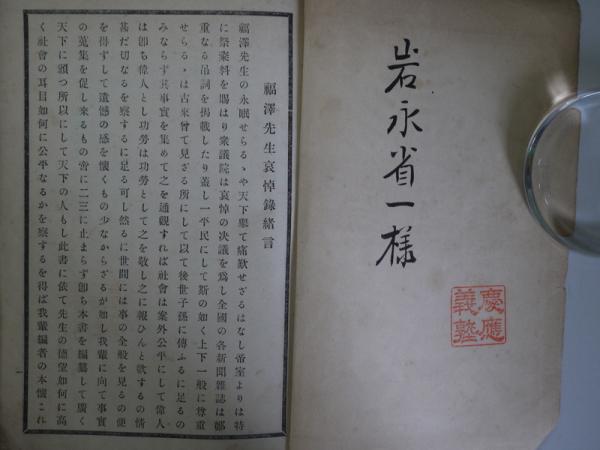 岩永省一様
慶應
義塾
福澤先生哀悼錄緒言
福澤先生の永眠せらるゝや天下擧て痛歎せざるはなし帝室よりは特
に祭粢料を賜はり衆議院は哀悼の決議を爲し全國の各新聞雜誌は鄭
重なる吊詞を掲載したり蓋し一平民にして斯の如く上下一般に尊重
せらるゝは古來曾て見ざる所にして以て後世子孫に傳ふるに足るの
みならず其事實を集めて之を通觀すれば社會は案外公平にして偉人
は卽ち偉人とし功勞は功勞として之を敬し之に報ひんと欲するの情
甚だ切なるを察するに足る可し然るに世間には事の全般を見るの便
を得ずして遺憾の感を懷くもの少なからざるが如し我輩に向て事實
の蒐集を促し來るもの啻に二三に止まらず卽ち本書を編纂して廣く
天下に頒つ所以にして天下の人もし此書に依て先生の德望如何に高
く社會の耳目如何に公平なるかを察するを得ば我輩編者の本懷これ